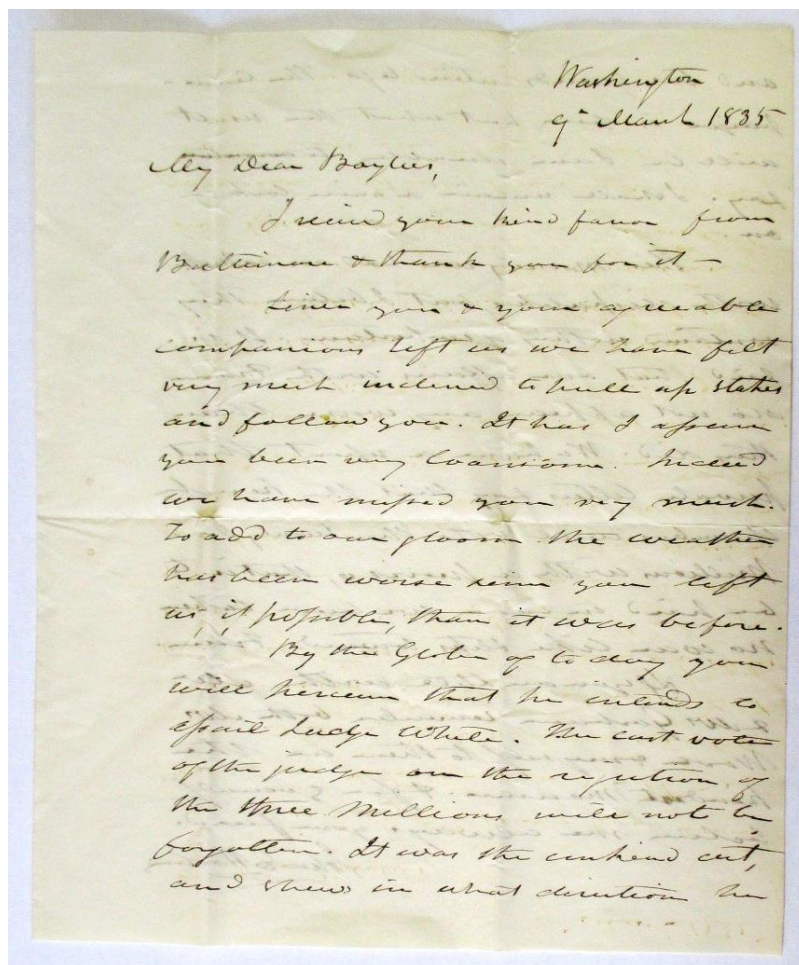 Washington
9th March 1835
My Dear Baylies,
I recd your kind favor from
Baltimore & thank you for it —
Since you & your agreeable
companions left us we have felt
very much inclined to pull up stakes
and follow you. It has I assure
you been very loansome. Indeed
we have missed you very much.
To add to our gloom the weather
has been worse since you left
us, if possible, than it was before.
By the Globe of to day you
will perceive that he intends to
assail Judge White. The last vote
of the judge on the rejection of
the three Millions will not be
forgotten. It was the unkind cut,
and shews in what direction he